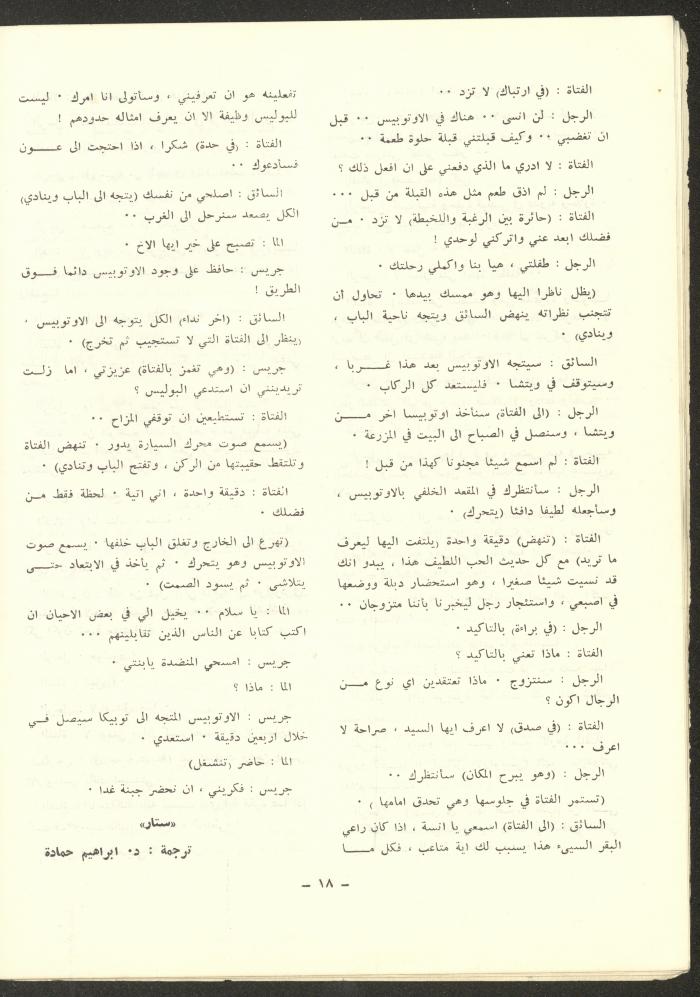 الفتاة : (في ارتباك) لا تزد ٠٠
الرجل : لن انسى ٠٠ هناك في الاوتوبيس ٠٠ قبل
ان تغضبي ٠٠ وكيف قبلتني قبلة حلوة طعمة ٠٠
الفتاة : لا ادري ما الذي دفعني على ان افعل ذلك ؟
الرجل : لم اذق طعم مثل هذه القبلة من قبل ٠٠٠
الفتاة : (حائرة بين الرغبة واللخبطة) لا تزد ٠ مــن
فضلك ابعد عني واتركني لوحدي !
الرجل : طفلتي ، هيا بنا واكملي رحلتك ٠
(يظل ناظرا اليها وهو ممسك بيدها ٠ تحاول أن
تتجنب نظراته ينهض السائق ويتجه ناحية الباب ،
وينادي) ٠
السائق : سيتجه الاوتوبيس بعد هذا غــــربا ،
وسيتوقف في ويتشا ٠ فليستعد كل الركاب ٠
الرجل : (الى الفتاة) سنأخذ اوتوبيسا اخر مــــن
ويتشا ، وسنصل في الصباح الى البيت في المزرعة ٠
الفتاة : لم اسمع شيئا مجنونا كهذا من قبل !
الرجل : سأنتظرك في المقعد الخلفي بالاوتوبيس ،
وسأجعله لطيفا دافئا (يتحرك) ٠
الفتاة : (تنهض) دقيقة واحدة (يلتفت اليها ليعرف
ما تريد) مع كل حديث الحب اللطيف هذا ، يبدو انك
قد نسيت شيئا صغيرا ، وهو استحضار دبلة ووضعها
في اصبعي ، واستئجار رجل ليخبرنا بأننا متزوجان ٠٠
الرجل : (في براءة) بالتاكيد ٠
الفتاة : ماذا تعني بالتاكيد ؟
الرجل : سنتزوج ٠ ماذا تعتقدين اي نوع مـــن
الرجال اكون ؟
الفتاة : (في صدق) لا اعرف ايها السيد ، صراحة لا
اعرف ٠٠٠
الرجل : (وهو يبرح المكان) سأنتظرك ٠٠
(تستمر الفتاة في جلوسها وهي تحدق امامها ) ٠
السائق : (الى الفتاة) اسمعي يا انسة ، اذا كان راعي
البقر السيىء هذا يسبب لك اية متاعب ، فكل مـــا
تفعلينه هو ان تعرفيني ، وسأتولى انا امرك ٠ ليست
للبوليس وظيفة الا ان يعرف امثاله حدودهم !
الفتاة : (في حدة) شكرا ، اذا احتجت الى عــــون
فسادعوك ٠٠
السائق : اصلحي من نفسك (يتجه الى الباب وينادي)
الكل يصعد سنرحل الى الغرب ٠٠
الما : تصبح على خير ايها الاخ ٠
جريس : حافظ على وجود الاوتوبيس دائما فـــوق
الطريق !
السائق : (اخر نداء) الكل يتوجه الى الاوتوبيس ٠
(ينظر الى الفتاة التي لا تستجيب ثم تخرج) ٠
جريس : (وهي تغمز بالفتاة) عزيزتي ، اما زلــت
تريدينني ان استدعي البوليس ؟
الفتاة : تستطيعين ان توقفي المزاح ٠٠
(يسمع صوت محرك السيارة يدور ٠ تنهض الفتاة
وتلتقط حقيبتها من الركن ، وتفتح الباب وتنادي) ٠
الفتاة : دقيقة واحدة ، اني اتية ٠ لحظة فقط مــن
فضلك ٠
(تهرع الى الخارج وتغلق الباب خلفها ٠ يسمع صوت
الاوتوبيس وهو يتحرك ٠ ثم يأخذ في الابتعاد حتـــى
يتلاشى ٠ ثم يسود الصمت) ٠
الما : يا سلام ٠٠ يخيل الي في بعض الاحيان ان
اكتب كتابا عن الناس الذين تقابلينهم ٠٠٠
جريس : امسحي المنضدة يابنتي ٠
الما : ماذا ؟
جريس : الاوتوبيس المتجه الى توبيكا سيصل فــي
خلال اربعين دقيقة ٠ استعدي ٠
الما : حاضر (تنشغل)
جريس : فكريني ، ان نحضر جبنة غدا ٠
«ستار»
ترجمة : د٠ ابراهيم حمادة
– ١٨ –